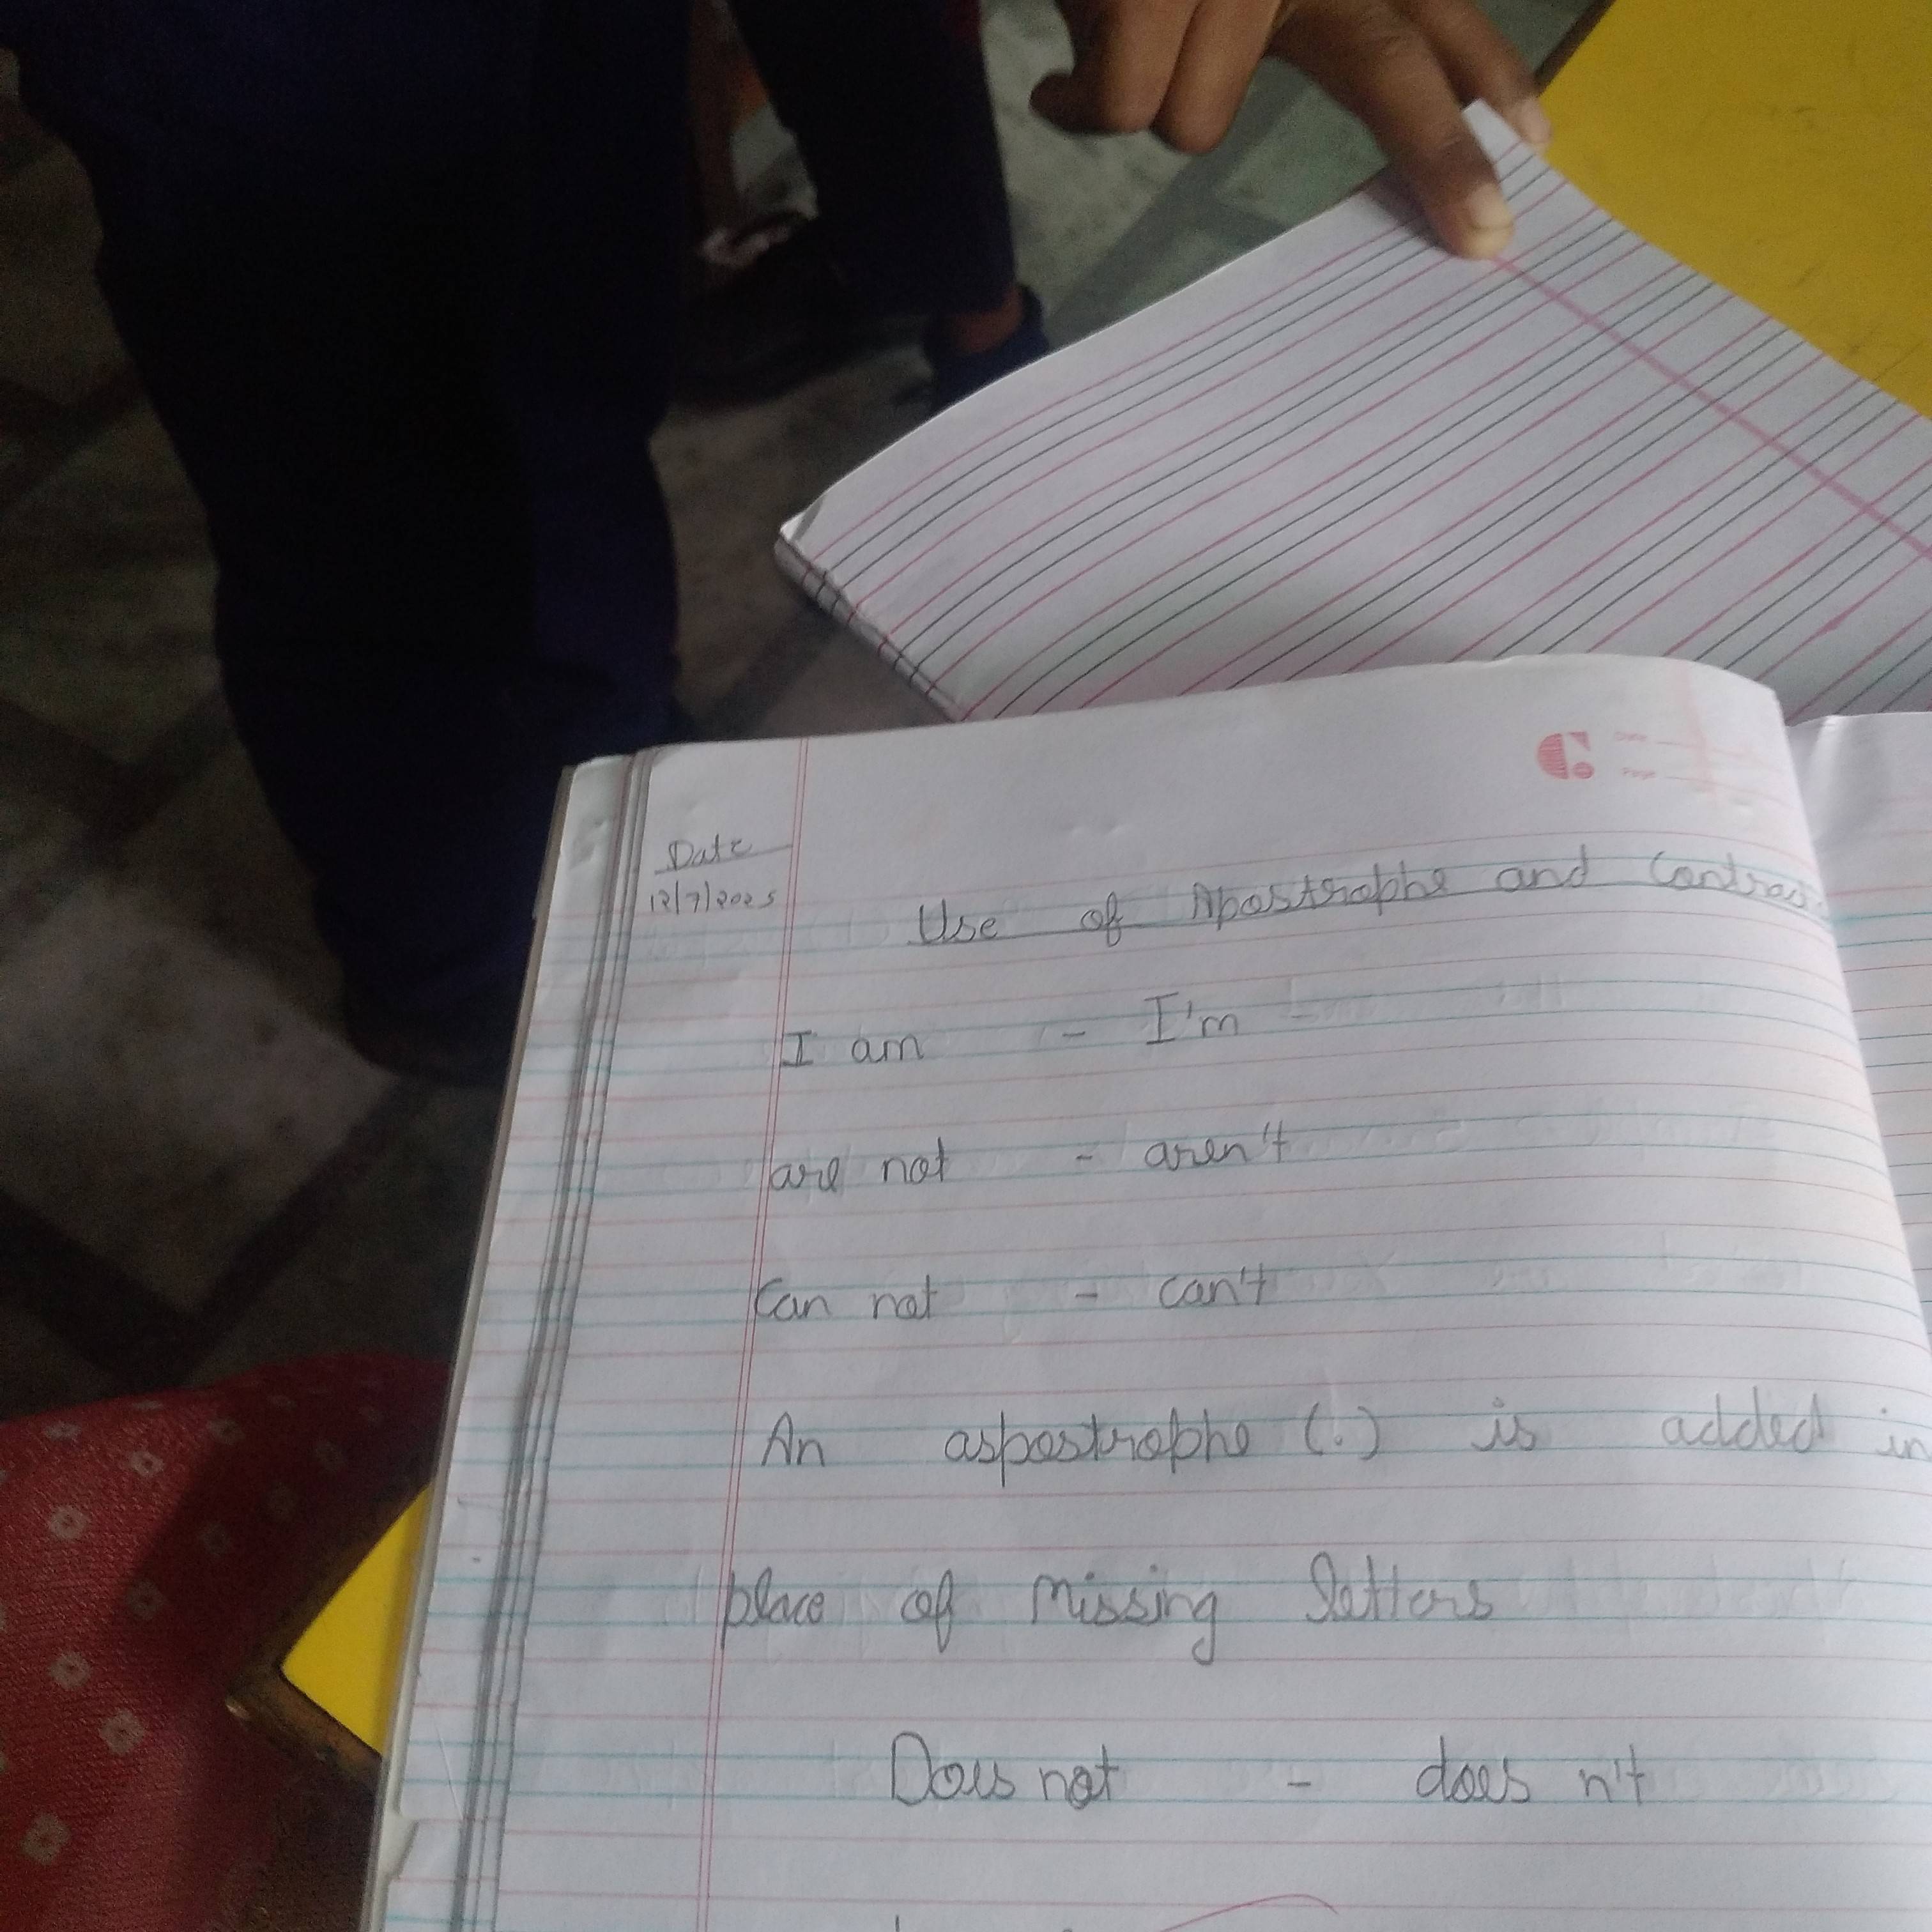 Date
Page
Date
12/7/2025
Use of Apostrophe and Contrac
I am - I'm
are not - aren't
Can not - can't
An aspostrophe (.) is added in
place of missing letters
Does not - does n't